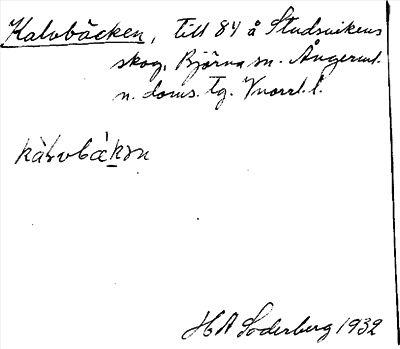 Kalvbäcken, till 84 å Studsvikens
skog. Björna sn. Ångerml.
n. doms. tg. Vnorrl. l.
kàlvbàkən
H A Söderberg 1932